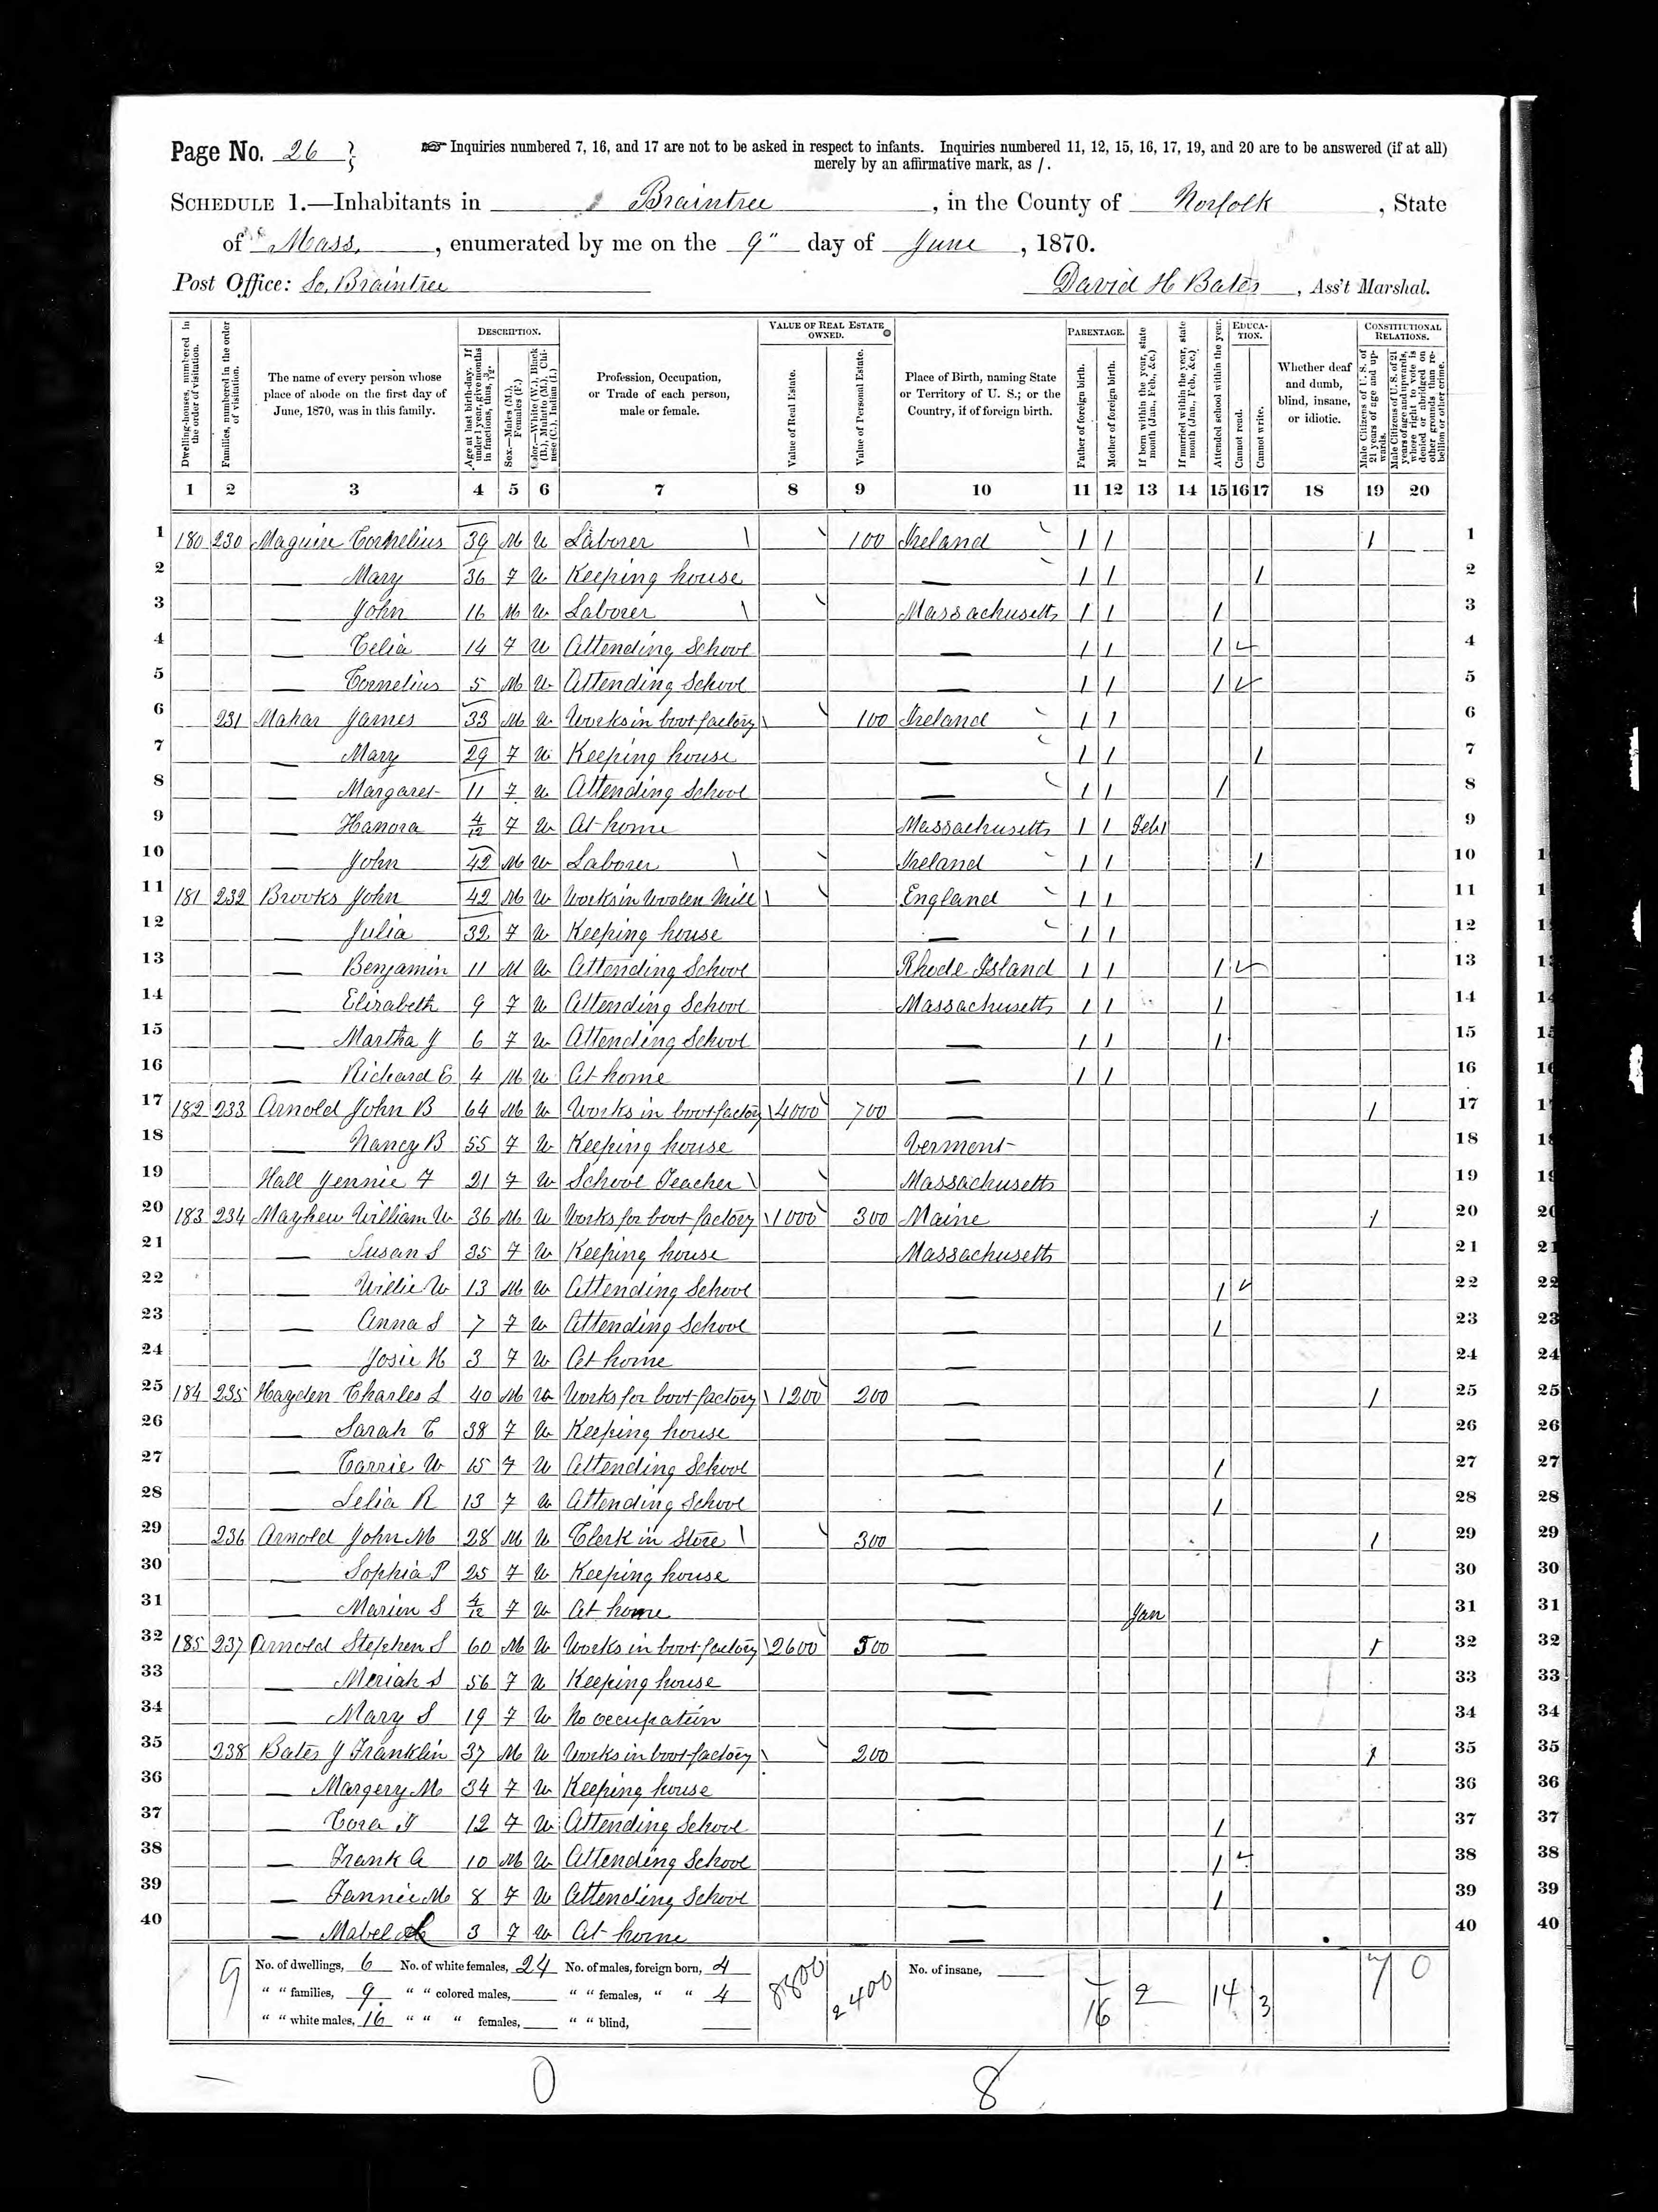 Page No. 26
Inquiries numbered 7, 16, and 17 are not to be asked in respect to infants. Inquiries numbered 11, 12, 15, 16, 17, 19, and 20 are to be answered (if at all)
merely by an affirmative mark, as /.
SCHEDULE 1.—Inhabitants in Braintree, in the County of Norfolk, State
of Mass., enumerated by me on the 9" day of June, 1870.
Post Office: So. Braintree David H Bates, Ass't Marshal.
Dwelling-houses, numbered in the order of visitation.
Families, numbered in the order of visitation.
The name of every person whose place of abode on the first day of June, 1870, was in this family.
DESCRIPTION.
Age at last birth-day. If under 1 year, give months in fractions, thus, 3/12.
Sex.—Males (M.), Females (F.)
Color.—White (W.), Black (B.), Mulatto (M.), Chinese (C.), Indian (I.)
Profession, Occupation, or Trade of each person, male or female.
VALUE OF REAL ESTATE OWNED.
Value of Real Estate.
Value of Personal Estate.
Place of Birth, naming State or Territory of U. S.; or the Country, if of foreign birth.
PARENTAGE.
Father of foreign birth.
Mother of foreign birth.
If born within the year, state month (Jan., Feb., &c.)
If married within the year, state month (Jan., Feb., &c.)
Attended school within the year.
EDUCATION.
Cannot read.
Cannot write.
Whether deaf and dumb, blind, insane, or idiotic.
CONSTITUTIONAL RELATIONS.
Male Citizens of U. S. of 21 years of age and upwards.
Male Citizens of U. S. of 21 years of age and upwards, whose right to vote is denied or abridged on other grounds than rebellion or other crime.
1 2 3 4 5 6 7 8 9 10 11 12 13 14 15 16 17 18 19 20
1 180 230 Maguire Cornelius 39 M W Laborer 100 Ireland / / / 1
2 — Mary 36 F W Keeping house — / / / 2
3 — John 16 M W Laborer Massachusetts / / / 3
4 — Celia 14 F W Attending School — / / / 4
5 — Cornelius 5 M W Attending School — / / / 5
6 231 Mahar James 33 M W Works in boot factory 100 Ireland / / 6
7 — Mary 29 F W Keeping house — / / / 7
8 — Margaret 11 F W Attending School — / / / 8
9 — Hanora 4/12 F W At home Massachusetts / / Feb 9
10 — John 42 M W Laborer Ireland / / / 10
11 181 232 Brooks John 42 M W Works in Woolen Mill England / / 11
12 — Julia 32 F W Keeping house — / / 12
13 — Benjamin 11 M W Attending School Rhode Island / / / 13
14 — Elizabeth 9 F W Attending School Massachusetts / / / 14
15 — Martha J 6 F W Attending School — / / / 15
16 — Richard E 4 M W At home — / / 16
17 182 233 Arnold John B 64 M W Works in boot factory 4000 700 — / 17
18 — Nancy B 55 F W Keeping house Vermont 18
19 Hall Jennie F 21 F W School Teacher Massachusetts 19
20 183 234 Mayhew William W 36 M W Works for boot factory 1000 300 Maine / 20
21 — Susan S 35 F W Keeping house Massachusetts 21
22 — Willie W 13 M W Attending School — / 22
23 — Anna S 7 F W Attending School — / 23
24 — Josie H 3 F W At home — 24
25 184 235 Hayden Charles L 40 M W Works for boot factory 1200 200 — / 25
26 — Sarah C 38 F W Keeping house — 26
27 — Carrie W 15 F W Attending School — / 27
28 — Lelia R 13 F W Attending School — / 28
29 236 Arnold John M 28 M W Clerk in Store 300 — / 29
30 — Sophia P 25 F W Keeping house — 30
31 — Marien S 4/12 F W At home — Jan 31
32 185 237 Arnold Stephen S 60 M W Works in boot factory 2600 500 — / 32
33 — Meriah S 56 F W Keeping house — 33
34 — Mary S 19 F W No occupation — 34
35 238 Bates J Franklin 37 M W Works in boot factory 200 — / 35
36 — Margery M 34 F W Keeping house — 36
37 — Cora 12 F W Attending School — / 37
38 — Frank A 10 M W Attending School — / 38
39 — Fannie M 8 F W Attending School — / 39
40 — Mabel 3 F W At home — 40
9 No. of dwellings, 6 No. of white females, 24 No. of males, foreign born, 4 8800 2400 No. of insane, 16 2 14 3 7 0
" " families, 9 " " colored males, " " females, " " 4
" " white males, 16 " " " females, " " blind,
0 8